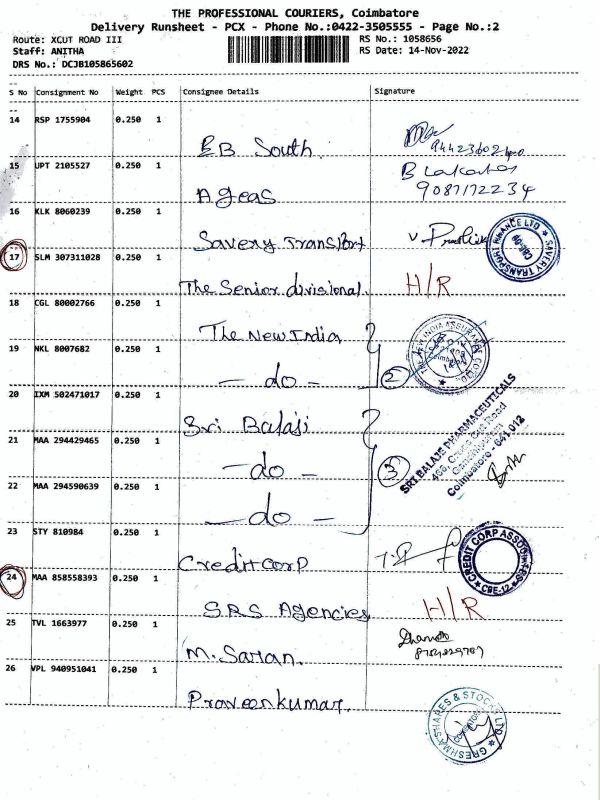 THE PROFESSIONAL COURIERS, Coimbatore
Delivery Runsheet - PCX - Phone No.:0422-3505555 - Page No.:2
Route: XCUT ROAD III RS No.: 1058656
Staff: ANITHA RS Date: 14-Nov-2022
DRS No.: DCJB105865602
S No Consignment No Weight PCS Consignee Details Signature
14 RSP 1755904 0.250 1
EB South.
15 UPT 2105527 0.250 1
B Lakshman
9087172234
Ageas
16 KLK 8060239 0.250 1
Savery Transport
SAVERY TRANSPORT FINANCE LTD
17 SLM 307311028 0.250 1
The Senior divisional. H/R
18 CGL 80002766 0.250 1
The New India
THE NEW INDIA ASSURANCE CO. LTD.
19 NKL 8007682 0.250 1
- do - 2
20 IXM 502471017 0.250 1
Sri Balaji
SRI BALAJI PHARMACEUTICALS
Coimbatore - 641 012
21 MAA 294429465 0.250 1
- do - 3
22 MAA 294590639 0.250 1
- do -
23 STY 810984 0.250 1
Creditcorp
CREDIT CORP ASSOCIATES
CBE-12
24 MAA 858558393 0.250 1
SRS Agencies H/R
25 TVL 1663977 0.250 1
M. Saran.
26 VPL 940951041 0.250 1
Praveenkumar.
GRESHMA SHARES & STOCKS LTD